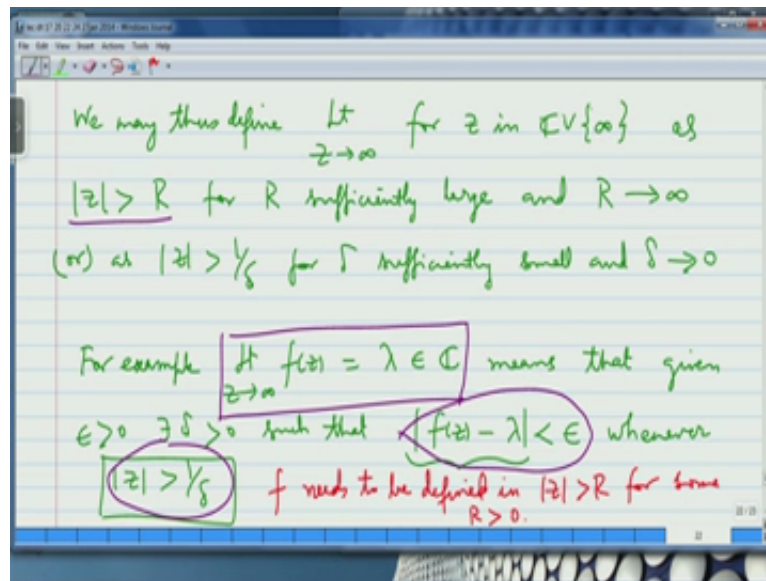 File Edit View Insert Actions Tools Help
We may thus define Lt for z in ℂ∪{∞} as
z→∞
|z| > R for R sufficiently large and R → ∞
(or) as |z| > 1/δ for δ sufficiently small and δ → 0
For example lt f(z) = λ ∈ ℂ means that given
z→∞
ϵ>0 ∃ δ>0 such that |f(z) - λ| < ϵ whenever
|z| > 1/δ f needs to be defined in |z| > R for some
R > 0.
22